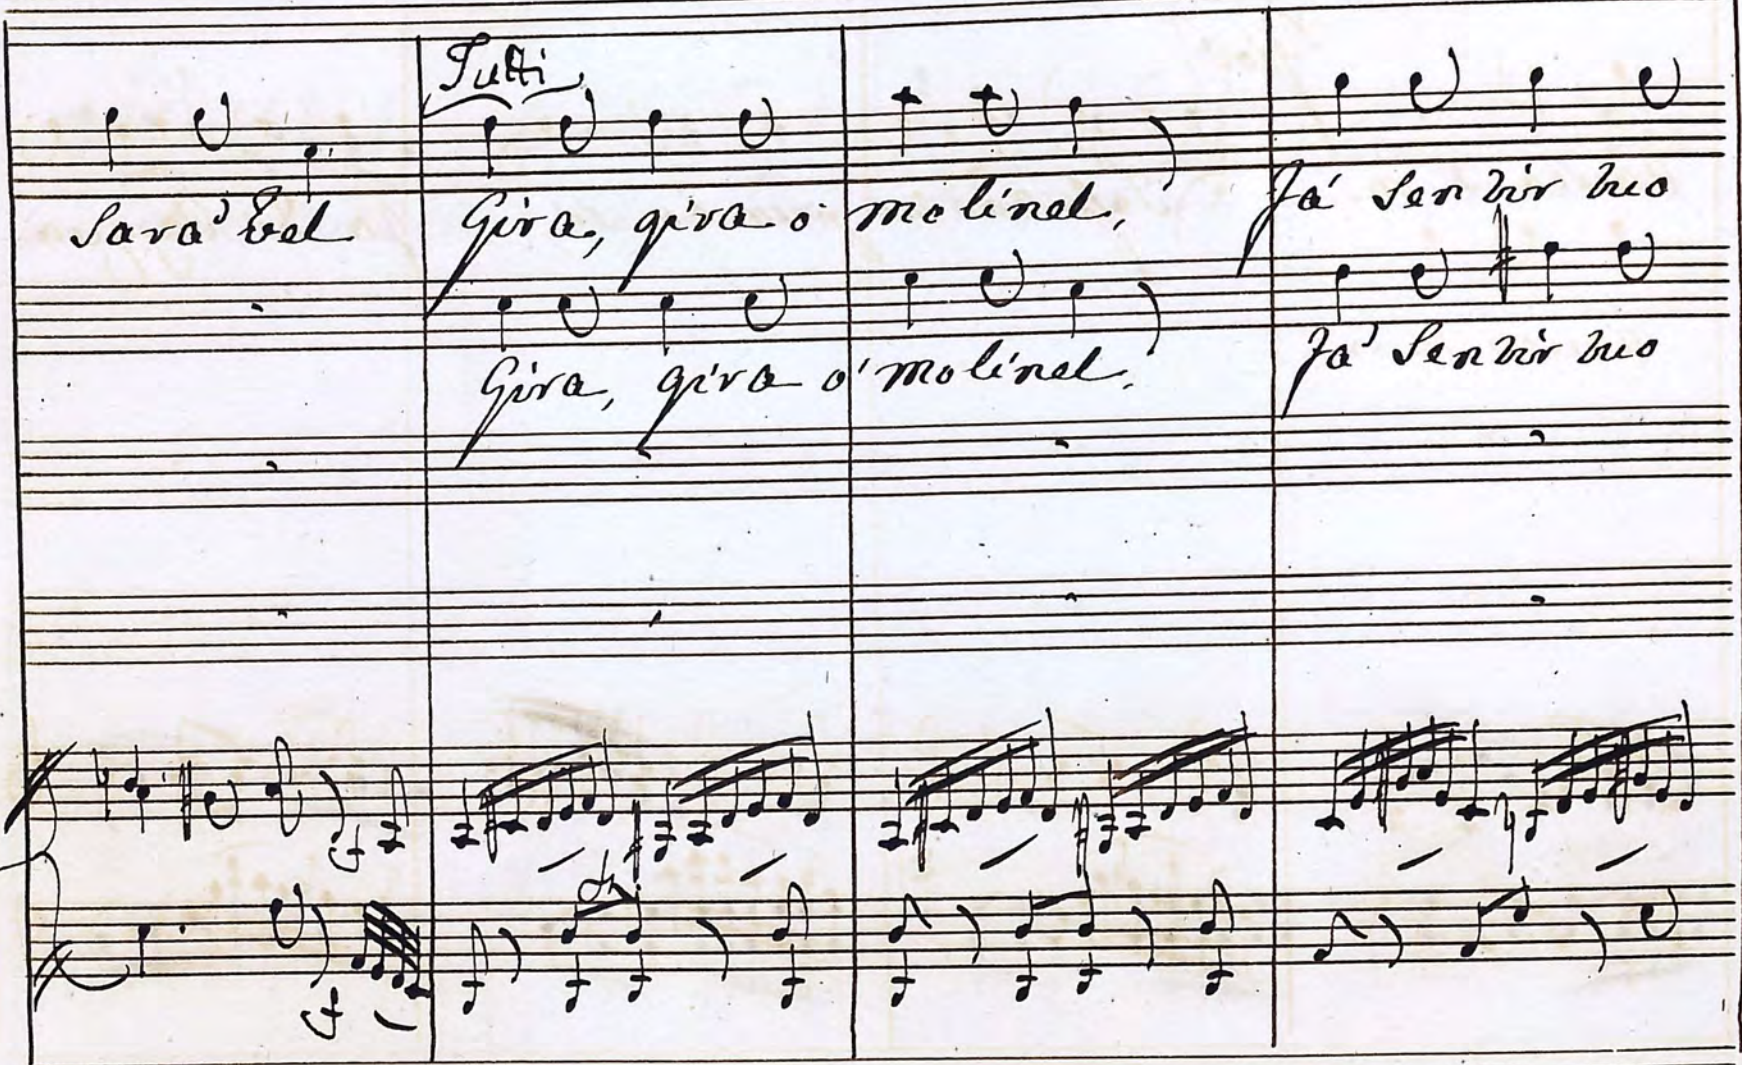 Tutti
Sara' bel Gira, gira o' molinel, Já Sen vir tuo
Gira, gira o' molinel, Ja' Sen vir tuo